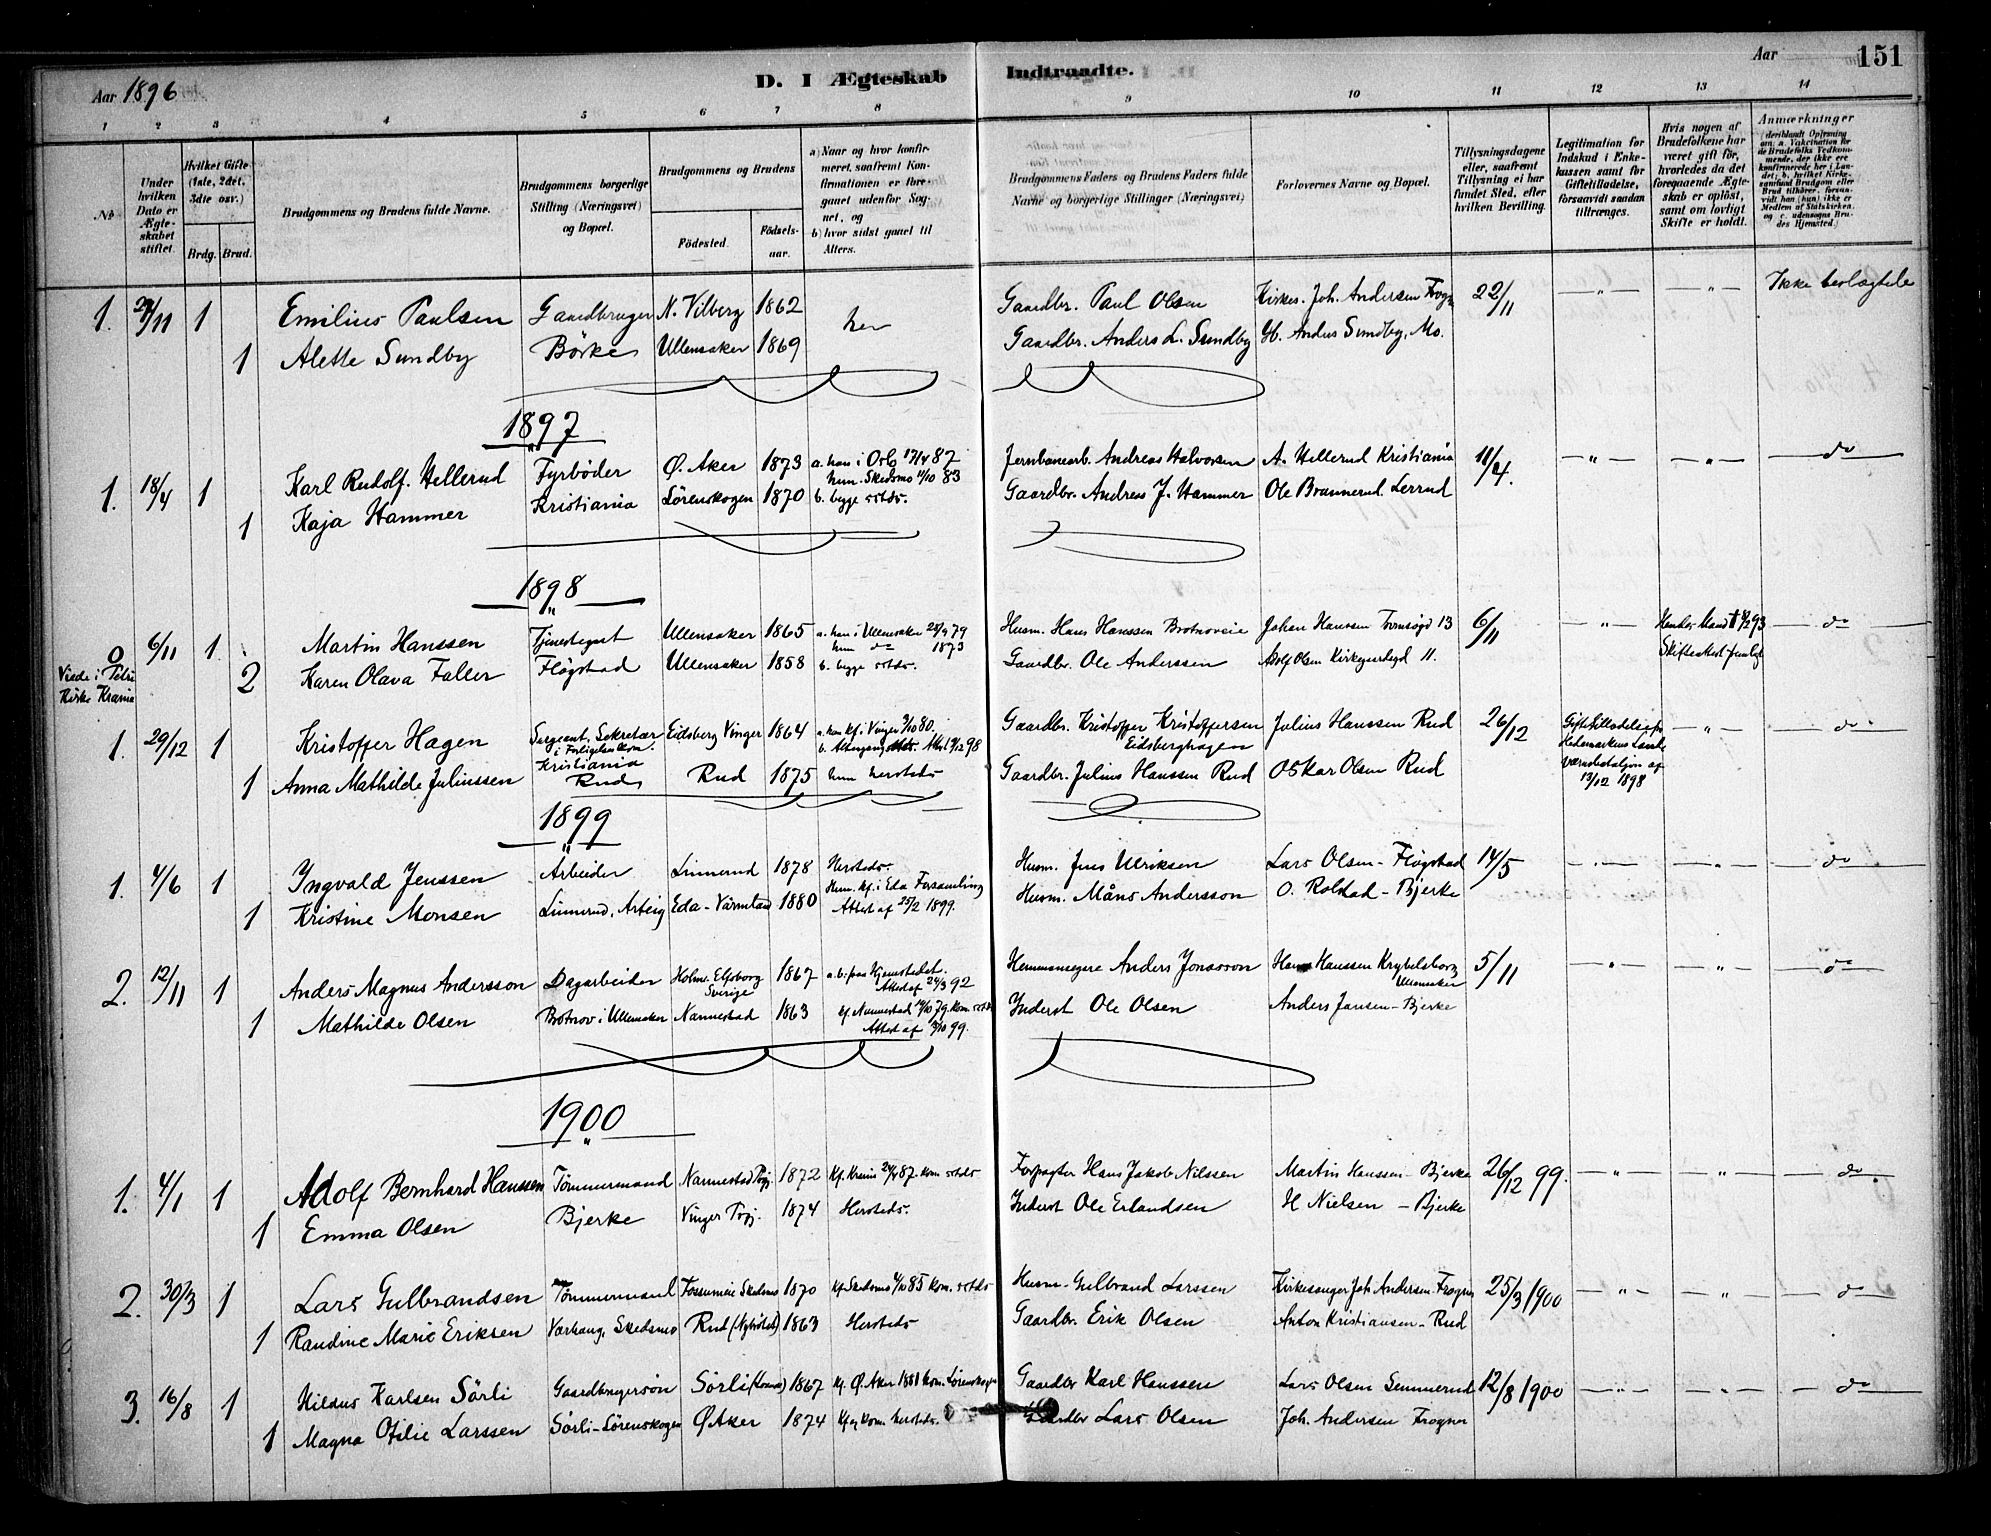 Aar 1896
D. I Ægteskab Indtraadte.
Aar
151
1 2 3 4 5 6 7 8 9 10 11 12 13 14
No
Under hvilken Dato er Ægteskabet stiftet.
Hvilket Gifte (1ste, 2det, 3die osv.)
Brdg. Brud.
Brudgommens og Brudens fulde Navne.
Brudgommens borgerlige Stilling (Næringsvei) og Bopæl.
Brudgommens og Brudens
Fødested.
Fødselsaar.
a) Naar og hvor konfirmeret, saafremt Konfirmationen er foregaaet udenfor Sognet, og
b) hvor sidst gaaet til Alters.
Brudgommens Faders og Brudens Faders fulde Navne og borgerlige Stillinger (Næringsvei)
Forlovernes Navne og Bopæl.
Tillysningsdagene eller, saafremt Tillysning ei har fundet Sted, efter hvilken Bevilling.
Legitimation for Indskud i Enkekassen samt for Giftetilladelse, forsaavidt saadan tiltrænges.
Hvis nogen af Brudefolkene har været gift før, hvorledes da det foregaaende Ægteskab er opløst, samt om lovligt Skifte er holdt.
Anmærkninger
(deriblandt Oplysning om: a. Vakcination for de Brudefolks Vedkommende, der ikke ere konfirmerede her i Landet; b. hvilket Kirkesamfund Brudgom eller Brud tilhører, forsaavidt han (hun) ikke er Medlem af Statskirken, og c. udensogns Brudes Hjemsted.)
1. 27/11 1 Emilius Paulsen Gaardbruger N. Vilberg 1862 her Gaardbr. Paul Olsen Kirkes. Joh. Andersen Frogn 22/11 — " — — " — Ikke beslægtede
1 Alette Sundby Børke Ullensaker 1869 Gaardbr. Anders L. Sundby H. Anders Sundby, Mo.
1897
1. 18/4 1 Karl Rudolf Hellerud Fyrbøder Ø. Aker 1873 a. han i Oslo 17/4 87 Jernbanearb. Andreas Halvorsen A. Hellerud Kristiania 11/4. — " — — " — do
hun. Skedsmo 11/10 83
1 Kaja Hammer Kristiania Lørenskogen 1870 b. begge sstds. Gaardbr. Andreas J. Hammer Ole Brannerud. Lerrud
1898
0 6/11 1. Martin Hanssen Tjenestegut Ullensaker 1865 a. han i Ullensaker 28/9 79 Husm. Hans Hanssen Brotnoveie Johan Hanssen Tromsøgd 13 6/11 — " —
hun do 1873
Viede i Petri Kirke Krania
2 Karen Olava Faller Fløgstad Ullensaker 1858 b. begge sstds. Gaardbr. Ole Anderssen Adolf Olsen Kirkegaardsgd 11.
1. 29/12 1 Kristoffer Hagen Sergeant, Sekretær i Forligelseskom. Kristiania Eidsberg Vinger 1864 a. han kf. i Vinger 3/10 80. Gaardbr. Kristoffer Kristoffersen Eidsberghagen Julius Hanssen Rud 26/12 13/12 1898 — " — do
1 Anna Mathilde Juliussen Rud Rud 1875 hun hersteds Gaardbr. Julius Hanssen Rud Oskar Olsen Rud
1899
1. 4/6 1 Yngvald Jenssen Arbeider Linnerud 1878 Hersteds. Husm. Jens Ulriksen Lars Olsen - Fløgstad 14/5 — " — — " — do
Hun. kf. i Eda Forsamling
1 Kristine Monsen Linnerud, Arteig Eda - Värmland 1880 Attest af 25/2 1899. Husm. Måns Andersson O. Rolstad - Bjerke
2. 12/11 1 Anders Magnus Andersson Dagarbeider Holm. Elfsborg Sverige 1867 a. b. paa Hjemstedet. Attest af 24/3 92 Hemmansegere Anders Jonasson Hans Hanssen Krybelsborg Ullensaker 5/11 — " — — " — do
1 Mathilde Olsen Brotnov i Ullensaker Nannestad 1863 kf. Nannestad 12/10 79. kom. sstds Attest af 3/10 99. Inderst Ole Olsen Anders Jansen - Bjerke
1900
1. 4/1 1 Adolf Bernhard Hanssen Tømmermand Nannestad Pgj. 1872 kf. Krania 24/4 87. kom sstds Forpagter Hans Jakob Nilssen Martin Hanssen - Bjerke 26/12 99. — " — — " — do
1 Emma Olsen Bjerke Vinger Pgj. 1874 Hersteds. Inderst Ole Erlandsen H Nielsen - Bjerke
2. 30/3 1 Lars Gulbrandsen Tømmermand Fossumeie Skedsmo 1870 kf. Skedsmo 4/10 85 kom. sstds Husm. Gulbrand Larssen Kirkesanger Joh. Andersen Frogner 25/3 1900 — " — — " — do
1 Randine Marie Eriksen Varhaug, Skedsmo Rud (Nybølet) 1863 Hersteds Gaardbr. Erik Olsen Anton Kristiansen - Rud
3. 16/8 1 Hildus Karlsen Sörli Gaardbrugersøn Sörli 1867 kf. Ø. Aker 1881 kom. Lørenskogen Gaardbr Karl Hanssen Lars Olsen Semmerud 12/8 1900 — " — — " — do
1 Magna Ofelie Larssen Sörli - Sörenskogen Ø Aker 1874 Kf og kom. hersteds. Gaardbr Lars Olsen Joh. Andersen Frogner